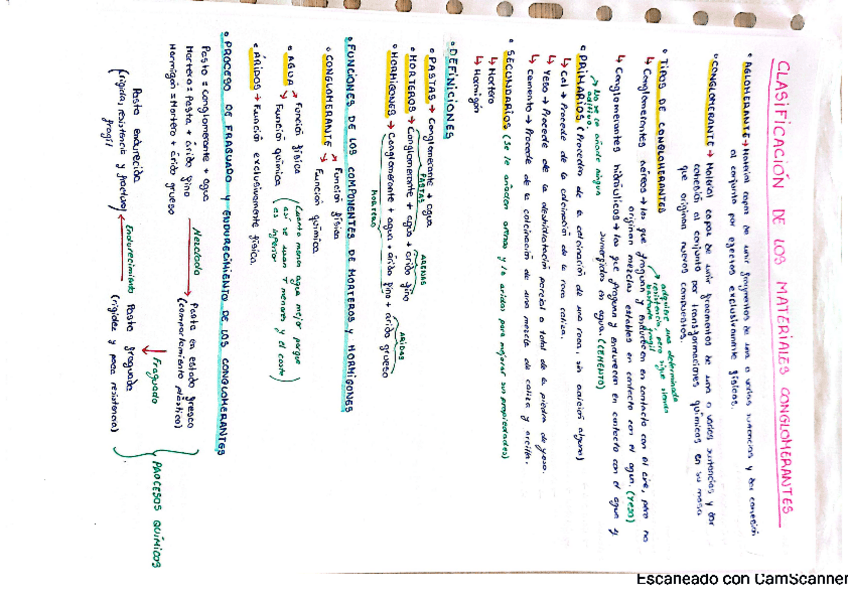 CLASIFICACIÓN DE LOS MATERIALES CONGLOMERANTES
• AGLOMERANTE → Material capaz de unir fragmentos de una o varias sustancias y dar cohesión
al conjunto por efectos exclusivamente físicos.
• CONGLOMERANTE → Material capaz de unir fragmentos de una o varias sustancias y dar
cohesión al conjunto por transformaciones químicas en su masa
que originan nuevos compuestos.
• TIPOS DE CONGLOMERANTES
adquiere una determinada
resistencia, pero sigue siendo
bastante frágil
↳ Conglomerantes aéreos → los que fraguan y endurecen en contacto con el aire, pero no
originan mezclas estables en contacto con el agua. (YESO)
↳ Conglomerantes hidráulicos → los que fraguan y endurecen en contacto con el agua y
sumergidos en agua. (CEMENTO)
No se le añade ningún
aditivo
• PRIMARIOS (Proceden de la calcinación de una roca, sin adición alguna)
↳ Cal → Procede de la calcinación de la roca caliza.
↳ Yeso → Procede de la deshidratación parcial o total de la piedra de yeso.
↳ Cemento → Procede de la calcinación de una mezcla de caliza y arcilla.
• SECUNDARIOS (Se le añaden arenas y/o áridos para mejorar sus propiedades)
↳ Mortero
↳ Hormigón
• DEFINICIONES
• PASTAS → Conglomerante + agua
PASTAS ARENAS
• MORTEROS → Conglomerante + agua + árido fino
ÁRIDOS
• HORMIGONES → Conglomerante + agua + árido fino + árido grueso
MORTERO
• FUNCIONES DE LOS COMPONENTES DE MORTEROS Y HORMIGONES
• CONGLOMERANTE → Función física
→ Función química
• AGUA → Función física
→ Función química
(Cuanto menos agua mejor porque
así se usan + menores y el coste
es inferior)
• ÁRIDOS → Función exclusivamente física.
• PROCESO DE FRAGUADO Y ENDURECIMIENTO DE LOS CONGLOMERANTES
Pasta = Conglomerante + agua
Mortero = Pasta + árido fino
Hormigón = Mortero + árido grueso
Mezclado
Pasta en estado fresco
(comportamiento plástico)
Fraguado
PROCESOS QUÍMICOS
Pasta fraguada
(rigidez y poca resistencia)
Endurecimiento
Pasta endurecida
(rigidez, resistencia y fractura)
frágil
Escaneado con CamScanner